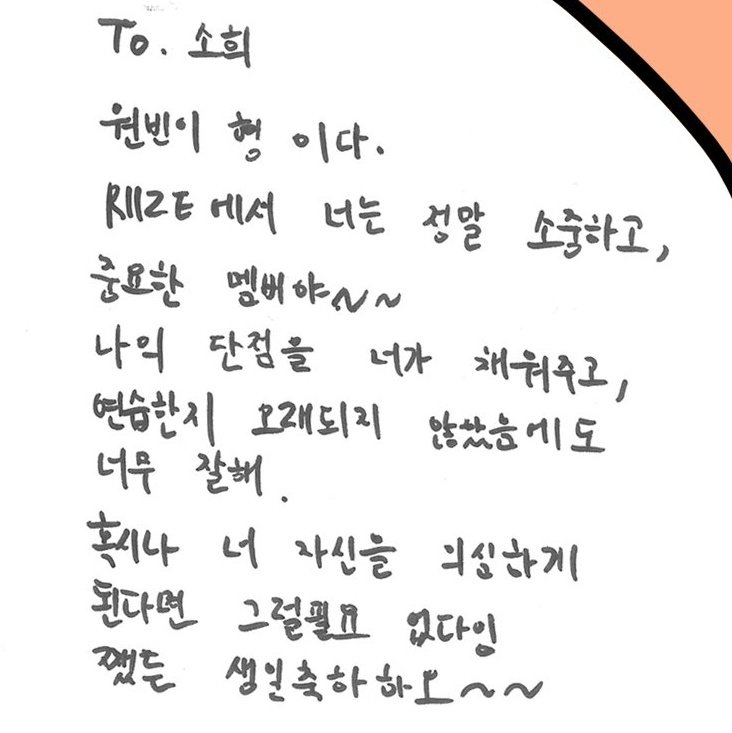 To. 소희
원빈이 형 이다.
RIIZE 에서 너는 정말 소중하고,
중요한 멤버야~~
나의 단점을 너가 채워주고,
연습한지 오래되지 않았음에도
너무 잘해.
혹시나 너 자신을 의심하게
된다면 그럴필요 없다잉
쨌든 생일축하하오~~